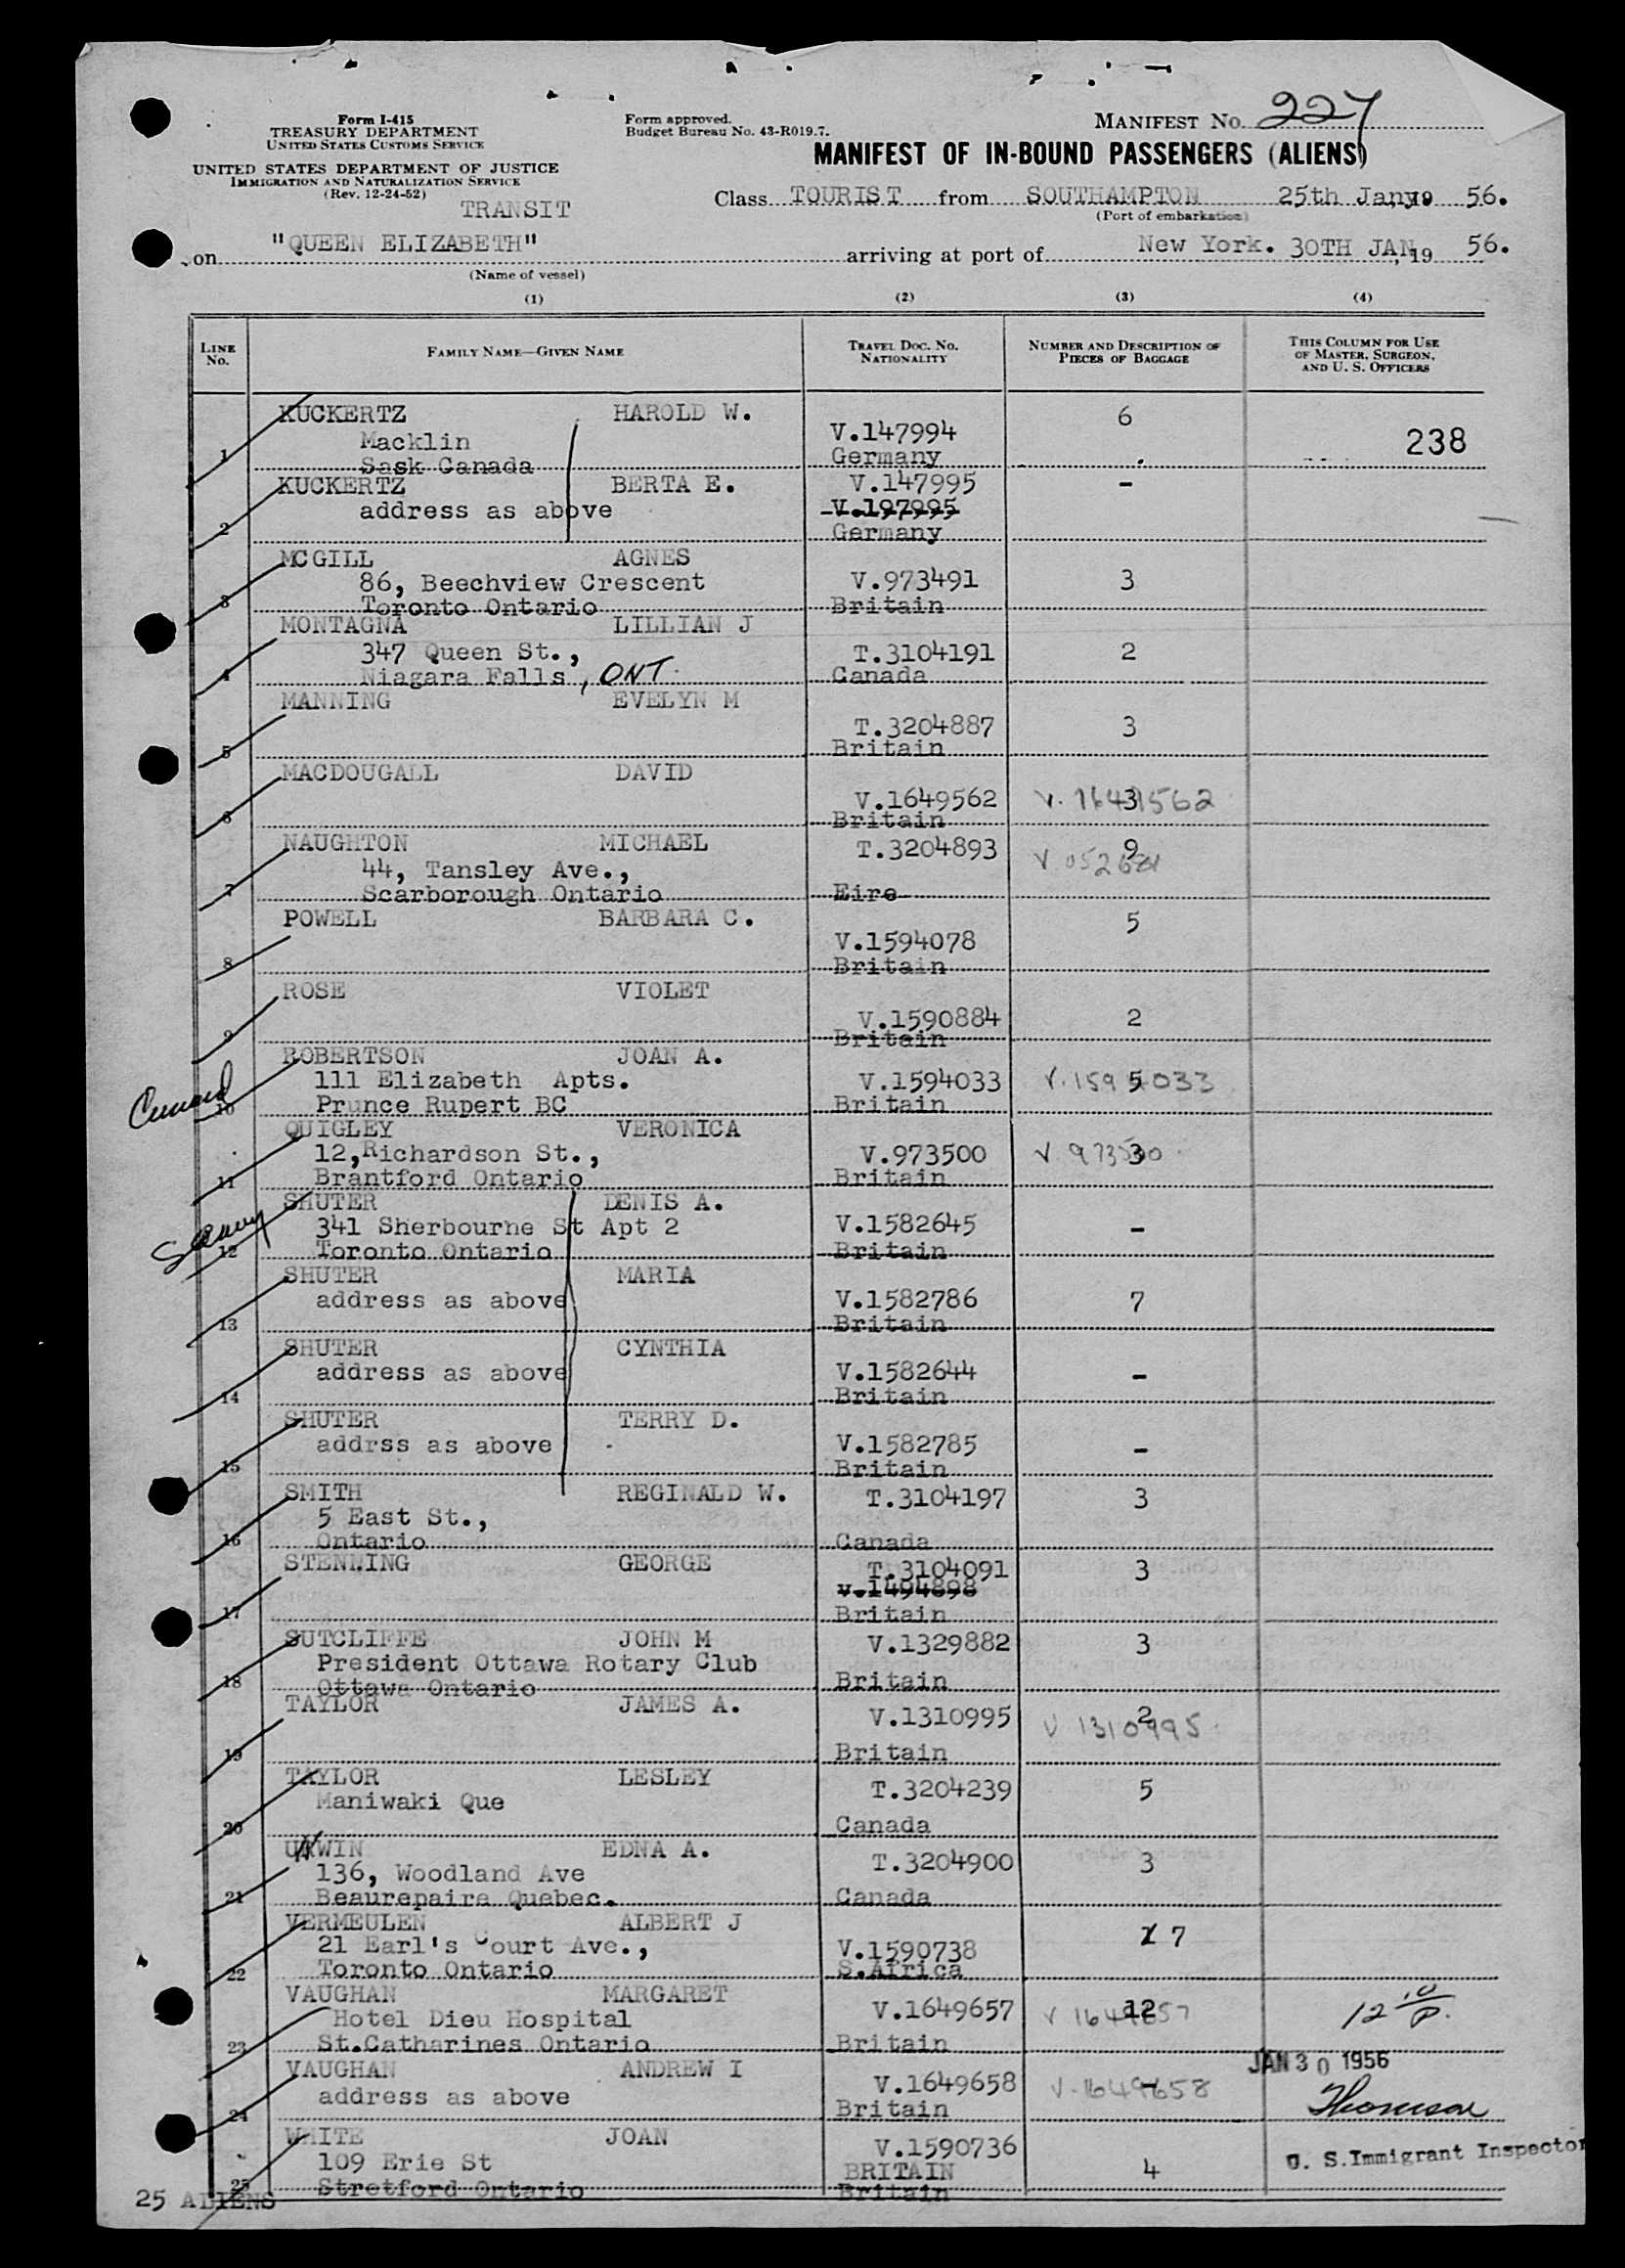 Form I-415
TREASURY DEPARTMENT
UNITED STATES CUSTOMS SERVICE
UNITED STATES DEPARTMENT OF JUSTICE
IMMIGRATION AND NATURALIZATION SERVICE
(Rev. 12-24-52)
TRANSIT
Form approved.
Budget Bureau No. 43-R019.7.
MANIFEST No. 227
MANIFEST OF IN-BOUND PASSENGERS (ALIENS)
Class TOURIST from SOUTHAMPTON 25th Jany 19 56.
(Port of embarkation)
on "QUEEN ELIZABETH" arriving at port of New York. 30TH JAN, 19 56.
(Name of vessel)
(1) (2) (3) (4)
LINE No. FAMILY NAME—GIVEN NAME TRAVEL DOC. No. NATIONALITY NUMBER AND DESCRIPTION OF PIECES OF BAGGAGE THIS COLUMN FOR USE OF MASTER, SURGEON, AND U. S. OFFICERS
KUCKERTZ HAROLD W. 6
Macklin V.147994 238
1 Sask Canada Germany
KUCKERTZ BERTA E. V.147995 -
address as above V.197995
2 Germany
MCGILL AGNES
86, Beechview Crescent V.973491 3
3 Toronto Ontario Britain
MONTAGNA LILLIAN J
347 Queen St., T.3104191 2
4 Niagara Falls, ONT. Canada
MANNING EVELYN M
T.3204887 3
5 Britain
MACDOUGALL DAVID
V.1649562 3 V.1649562
6 Britain
NAUGHTON MICHAEL T.3204893 9
44, Tansley Ave., V
7 Scarborough Ontario Eire
POWELL BARBARA C. 5
V.1594078
8 Britain
ROSE VIOLET
V.1590884 2
9 Britain
ROBERTSON JOAN A.
111 Elizabeth Apts. V.1594033 5 V.1594033
Cunard 10 Prunce Rupert BC Britain
QUIGLEY VERONICA
12, Richardson St., V.973500 3 V 973500
11 Brantford Ontario Britain
SHUTER DENIS A.
341 Sherbourne St Apt 2 V.1582645 -
12 Toronto Ontario Britain
SHUTER MARIA
address as above V.1582786 7
13 Britain
SHUTER CYNTHIA
address as above V.1582644 -
14 Britain
SHUTER TERRY D.
addrss as above V.1582785 -
15 Britain
SMITH REGINALD W. T.3104197 3
5 East St.,
16 Ontario Canada
STENNING GEORGE T.3104091 3
V.1494898
17 Britain
SUTCLIFFE JOHN M V.1329882 3
President Ottawa Rotary Club
18 Ottawa Ontario Britain
TAYLOR JAMES A. V.1310995 2 V 1310995
19 Britain
TAYLOR LESLEY T.3204239 5
Maniwaki Que
20 Canada
UNWIN EDNA A. T.3204900 3
136, Woodland Ave
21 Beaurepaire Quebec. Canada
VERMEULEN ALBERT J 7
21 Earl's Court Ave., V.1590738
22 Toronto Ontario S.Africa
VAUGHAN MARGARET V.1649657 12 V 1649657
Hotel Dieu Hospital 12 10/P.
23 St.Catharines Ontario Britain
VAUGHAN ANDREW I V.1649658 - V.1649658 JAN 30 1956
address as above
24 Britain Thomson
WHITE JOAN V.1590736
109 Erie St BRITAIN 4 U. S. Immigrant Inspector
25 Stretford Ontario Britain
25 ALIENS